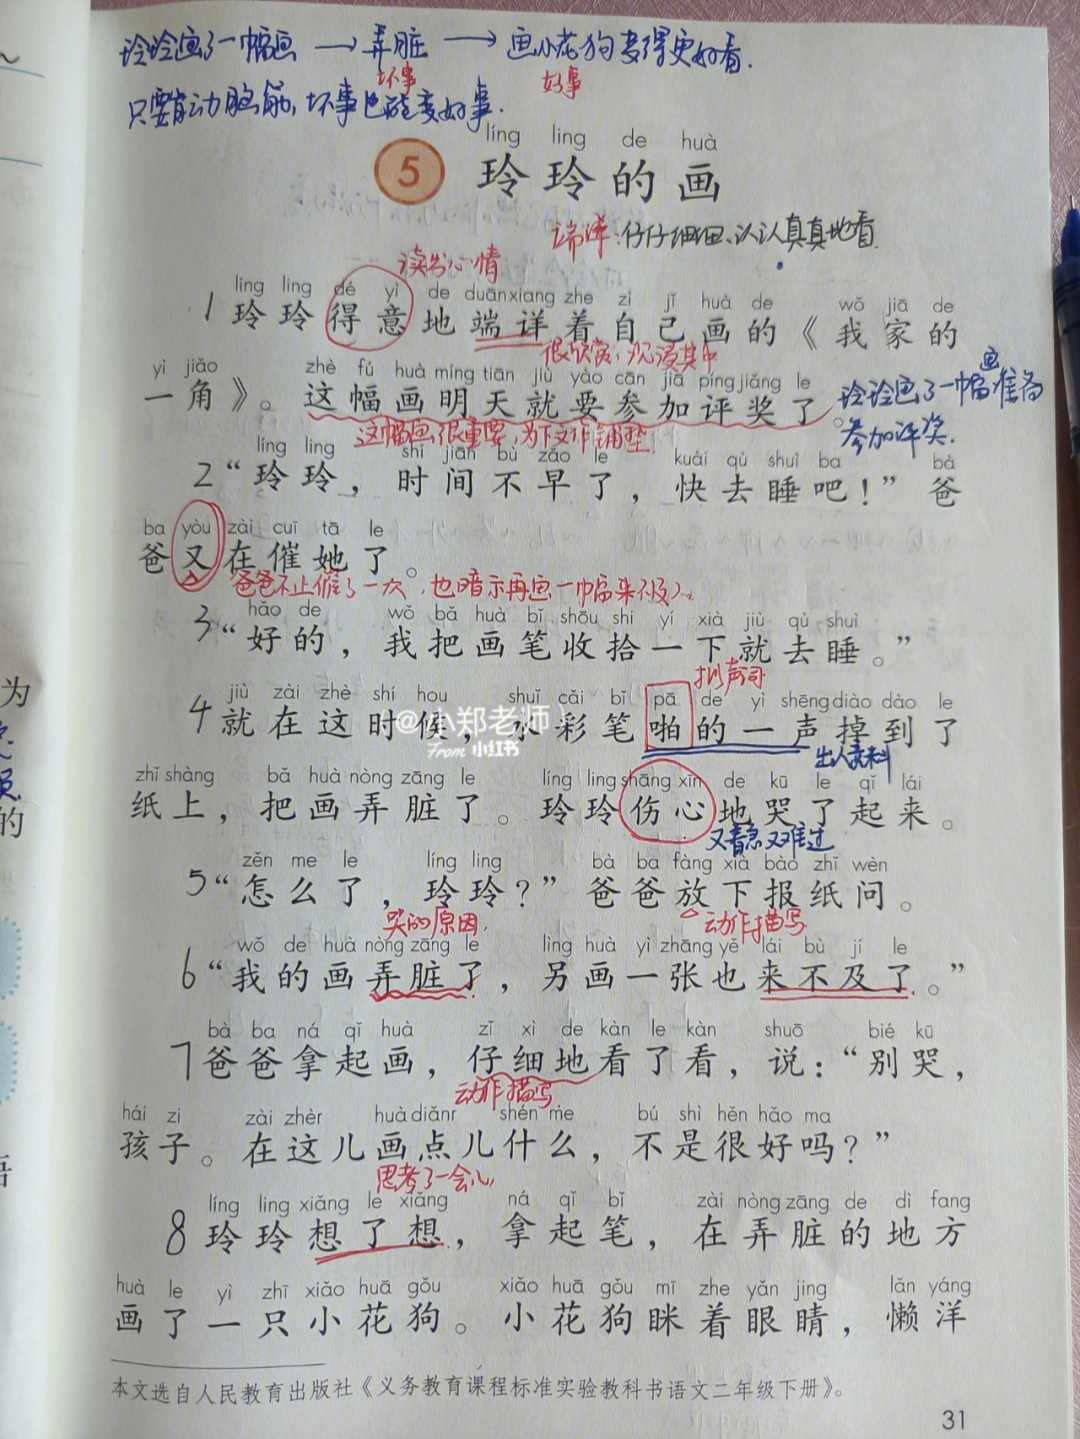 玲玲画了一幅画 → 弄脏 → 画小花狗变得更好看.
坏事 好事
只要肯动脑筋, 坏事也能变好事.
líng ling de huà
5 玲玲的画
端详:仔仔细细、认认真真地看
读出心情
líng ling dé yì de duānxiang zhe zì jǐ huà de wǒ jiā de
1 玲玲得意地端详着自己画的《我家的
很欣赏,沉浸其中
yì jiǎo zhè fú huà míng tiān jiù yào cān jiā píng jiǎng le
一角》。这幅画明天就要参加评奖了。
玲玲画了一幅画准备
参加评奖.
这幅画很重要,为下文作铺垫.
líng ling shí jiān bù zǎo le kuài qù shuì ba bà
2“玲玲,时间不早了,快去睡吧!”爸
ba yòu zài cuī tā le
爸又在催她了。
爸爸不止催了一次,也暗示再画一幅来不及了。
hǎo de wǒ bǎ huà bǐ shōu shi yí xià jiù qù shuì
3“好的,我把画笔收拾一下就去睡。”
拟声词
jiù zài zhè shí hou shuǐ cǎi bǐ pā de yì shēng diào dào le
4就在这时候,水彩笔啪的一声掉到了
@小郑老师
From 小红书
出人意料
zhǐ shàng bǎ huà nòng zāng le líng ling shāng xīn de kū le qǐ lái
纸上,把画弄脏了。玲玲伤心地哭了起来。
又着急又难过
zěn me le líng ling bà ba fàng xià bào zhǐ wèn
5“怎么了,玲玲?”爸爸放下报纸问。
哭的原因. 动作描写
wǒ de huà nòng zāng le lìng huà yì zhāng yě lái bù jí le
6“我的画弄脏了,另画一张也来不及了。”
bà ba ná qǐ huà zǐ xì de kàn le kàn shuō bié kū
7爸爸拿起画,仔细地看了看,说:“别哭,
动作描写
hái zi zài zhèr huà diǎnr shén me bú shì hěn hǎo ma
孩子。在这儿画点儿什么,不是很好吗?”
思考了一会儿
líng ling xiǎng le xiǎng ná qǐ bǐ zài nòng zāng de dì fang
8玲玲想了想,拿起笔,在弄脏的地方
huà le yì zhī xiǎo huā gǒu xiǎo huā gǒu mī zhe yǎn jing lǎn yáng
画了一只小花狗。小花狗眯着眼睛,懒洋
本文选自人民教育出版社《义务教育课程标准实验教科书语文二年级下册》。
31
为
的